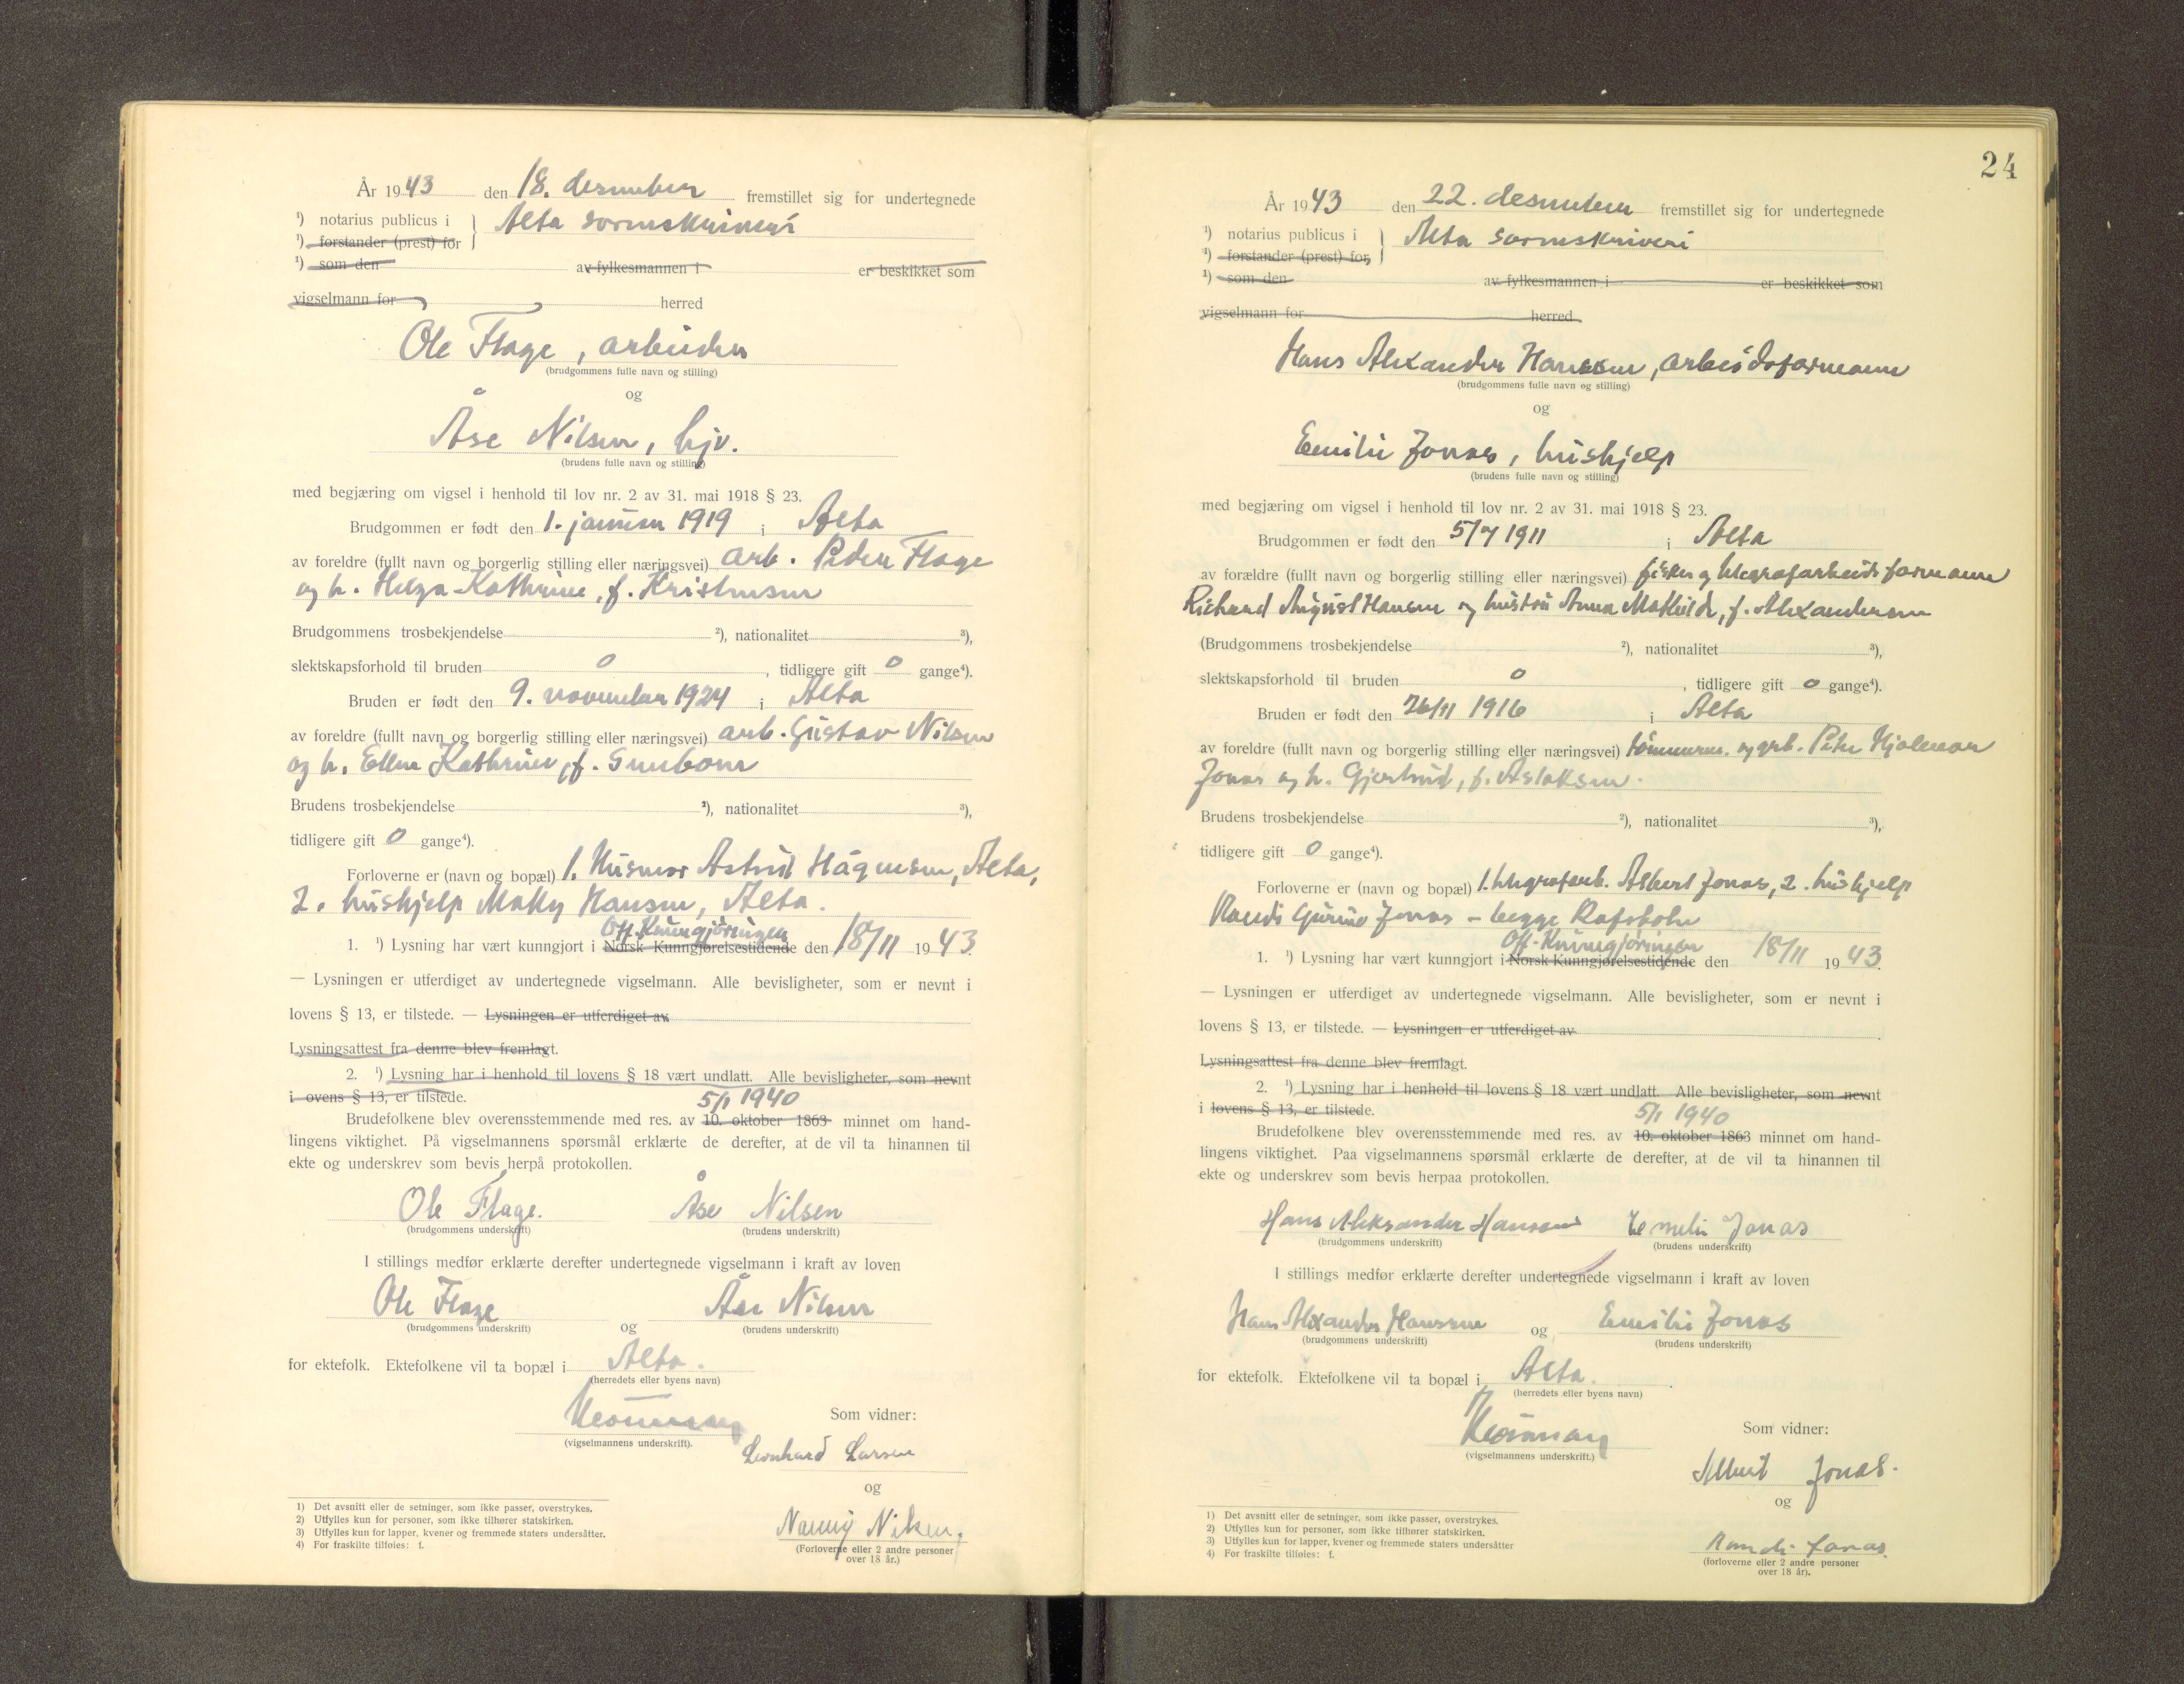 År 1943 den 18. desember fremstillet sig for undertegnede
¹) notarius publicus i } Alta sorenskriveri
¹) forstander (prest) for
¹) som den av fylkesmannen i er beskikket som
vigselmann for herred
Ole Flage, arbeider
(brudgommens fulle navn og stilling)
og
Åse Nilsen, hjv.
(brudens fulle navn og stilling)
med begjæring om vigsel i henhold til lov nr. 2 av 31. mai 1918 § 23.
Brudgommen er født den 1. januar 1919 i Alta
av foreldre (fullt navn og borgerlig stilling eller næringsvei) arb. Peder Flage
og h. Helga Kathrine, f. Kristensen
Brudgommens trosbekjendelse ²), nationalitet ³),
slektskapsforhold til bruden 0, tidligere gift 0 gange⁴).
Bruden er født den 9. november 1924 i Alta
av foreldre (fullt navn og borgerlig stilling eller næringsvei) arb. Gustav Nilsen
og h. Ellen Kathrine, f.
Brudens trosbekjendelse ²), nationalitet ³),
tidligere gift 0 gange⁴).
Forloverne er (navn og bopæl) 1. Husmor Astrid Hågensen, Alta,
2. hushjelp Hansen, Alta.
Off. Kunngjøringer
1. ¹) Lysning har vært kunngjort i Norsk Kunngjørelsestidende den 18/11 1943.
— Lysningen er utferdiget av undertegnede vigselmann. Alle bevisligheter, som er nevnt i
lovens § 13, er tilstede. — Lysningen er utferdiget av
Lysningsattest fra denne blev fremlagt.
2. ¹) Lysning har i henhold til lovens § 18 vært undlatt. Alle bevisligheter, som nevnt
i ovens § 13, er tilstede.
5/1 1940
Brudefolkene blev overensstemmende med res. av 10. oktober 1863 minnet om hand-
lingens viktighet. På vigselmannens spørsmål erklærte de derefter, at de vil ta hinannen til
ekte og underskrev som bevis herpå protokollen.
Ole Flage. Åse Nilsen
(brudgommens underskrift) (brudens underskrift)
I stillings medfør erklærte derefter undertegnede vigselmann i kraft av loven
Ole Flage og Åse Nilsen
(brudgommens underskrift) (brudens underskrift)
for ektefolk. Ektefolkene vil ta bopæl i Alta.
(herredets eller byens navn)
(vigselmannens underskrift).
Som vidner:
Leonhard Larsen
og
Nanny Nilsen.
(Forloverne eller 2 andre personer
over 18 år.)
1) Det avsnitt eller de setninger, som ikke passer, overstrykes.
2) Utfylles kun for personer, som ikke tilhører statskirken.
3) Utfylles kun for lapper, kvener og fremmede staters undersåtter.
4) For fraskilte tilføies: f.
24
År 1943 den 22. desember fremstillet sig for undertegnede
¹) notarius publicus i } Alta sorenskriveri
¹) forstander (prest) for
¹) som den av fylkesmannen i er beskikket som
vigselmann for herred
Hans Alexander Hanssen, arbeidsformann
(brudgommens fulle navn og stilling)
og
Emilie Jonas, hushjelp
(brudens fulle navn og stilling)
med begjæring om vigsel i henhold til lov nr. 2 av 31. mai 1918 § 23.
Brudgommen er født den 5/7 1911 i Alta
av forældre (fullt navn og borgerlig stilling eller næringsvei) fisker og telegrafarbeidsformann
Richard August Hansen og hustru Anna Mathilde, f. Alexandersen
(Brudgommens trosbekjendelse ²), nationalitet ³),
slektskapsforhold til bruden 0, tidligere gift 0 gange⁴).
Bruden er født den 26/11 1916 i Alta
av foreldre (fullt navn og borgerlig stilling eller næringsvei) tømmerm. og grb. Peter Hjalmar
Jonas og h. Gjertrud, f. Aslaksen.
Brudens trosbekjendelse ²), nationalitet ³),
tidligere gift 0 gange⁴).
Forloverne er (navn og bopæl) 1. telegrafarb. Albert Jonas, 2. hushjelp
Randi Jonas – begge Rafsbotn
Off. Kunngjøringer
1. ¹) Lysning har vært kunngjort i Norsk Kunngjørelsestidende den 18/11 1943.
— Lysningen er utferdiget av undertegnede vigselmann. Alle bevisligheter, som er nevnt i
lovens § 13, er tilstede. — Lysningen er utferdiget av
Lysningsattest fra denne blev fremlagt.
2. ¹) Lysning har i henhold til lovens § 18 vært undlatt. Alle bevisligheter, som nevnt
i lovens § 13, er tilstede.
5/1 1940
Brudefolkene blev overensstemmende med res. av 10. oktober 1863 minnet om hand-
lingens viktighet. Paa vigselmannens spørsmål erklærte de derefter, at de vil ta hinannen til
ekte og underskrev som bevis herpaa protokollen.
Hans Aleksander Hansen Emelie Jonas
(brudgommens underskrift) (brudens underskrift)
I stillings medfør erklærte derefter undertegnede vigselmann i kraft av loven
Hans Alexander Hanssen og Emilie Jonas
(brudgommens underskrift) (brudens underskrift)
for ektefolk. Ektefolkene vil ta bopæl i Alta.
(herredets eller byens navn)
(vigselmannens underskrift.)
Som vidner:
Albert Jonas.
og
Randi Jonas.
(forloverne eller 2 andre personer
over 18 år).
1) Det avsnitt eller de setninger, som ikke passer, overstrykes.
2) Utfylles kun for personer, som ikke tilhører statskirken.
3) Utfylles kun for lapper, kvener og fremmede staters undersåtter
4) For fraskilte tilføies: f.